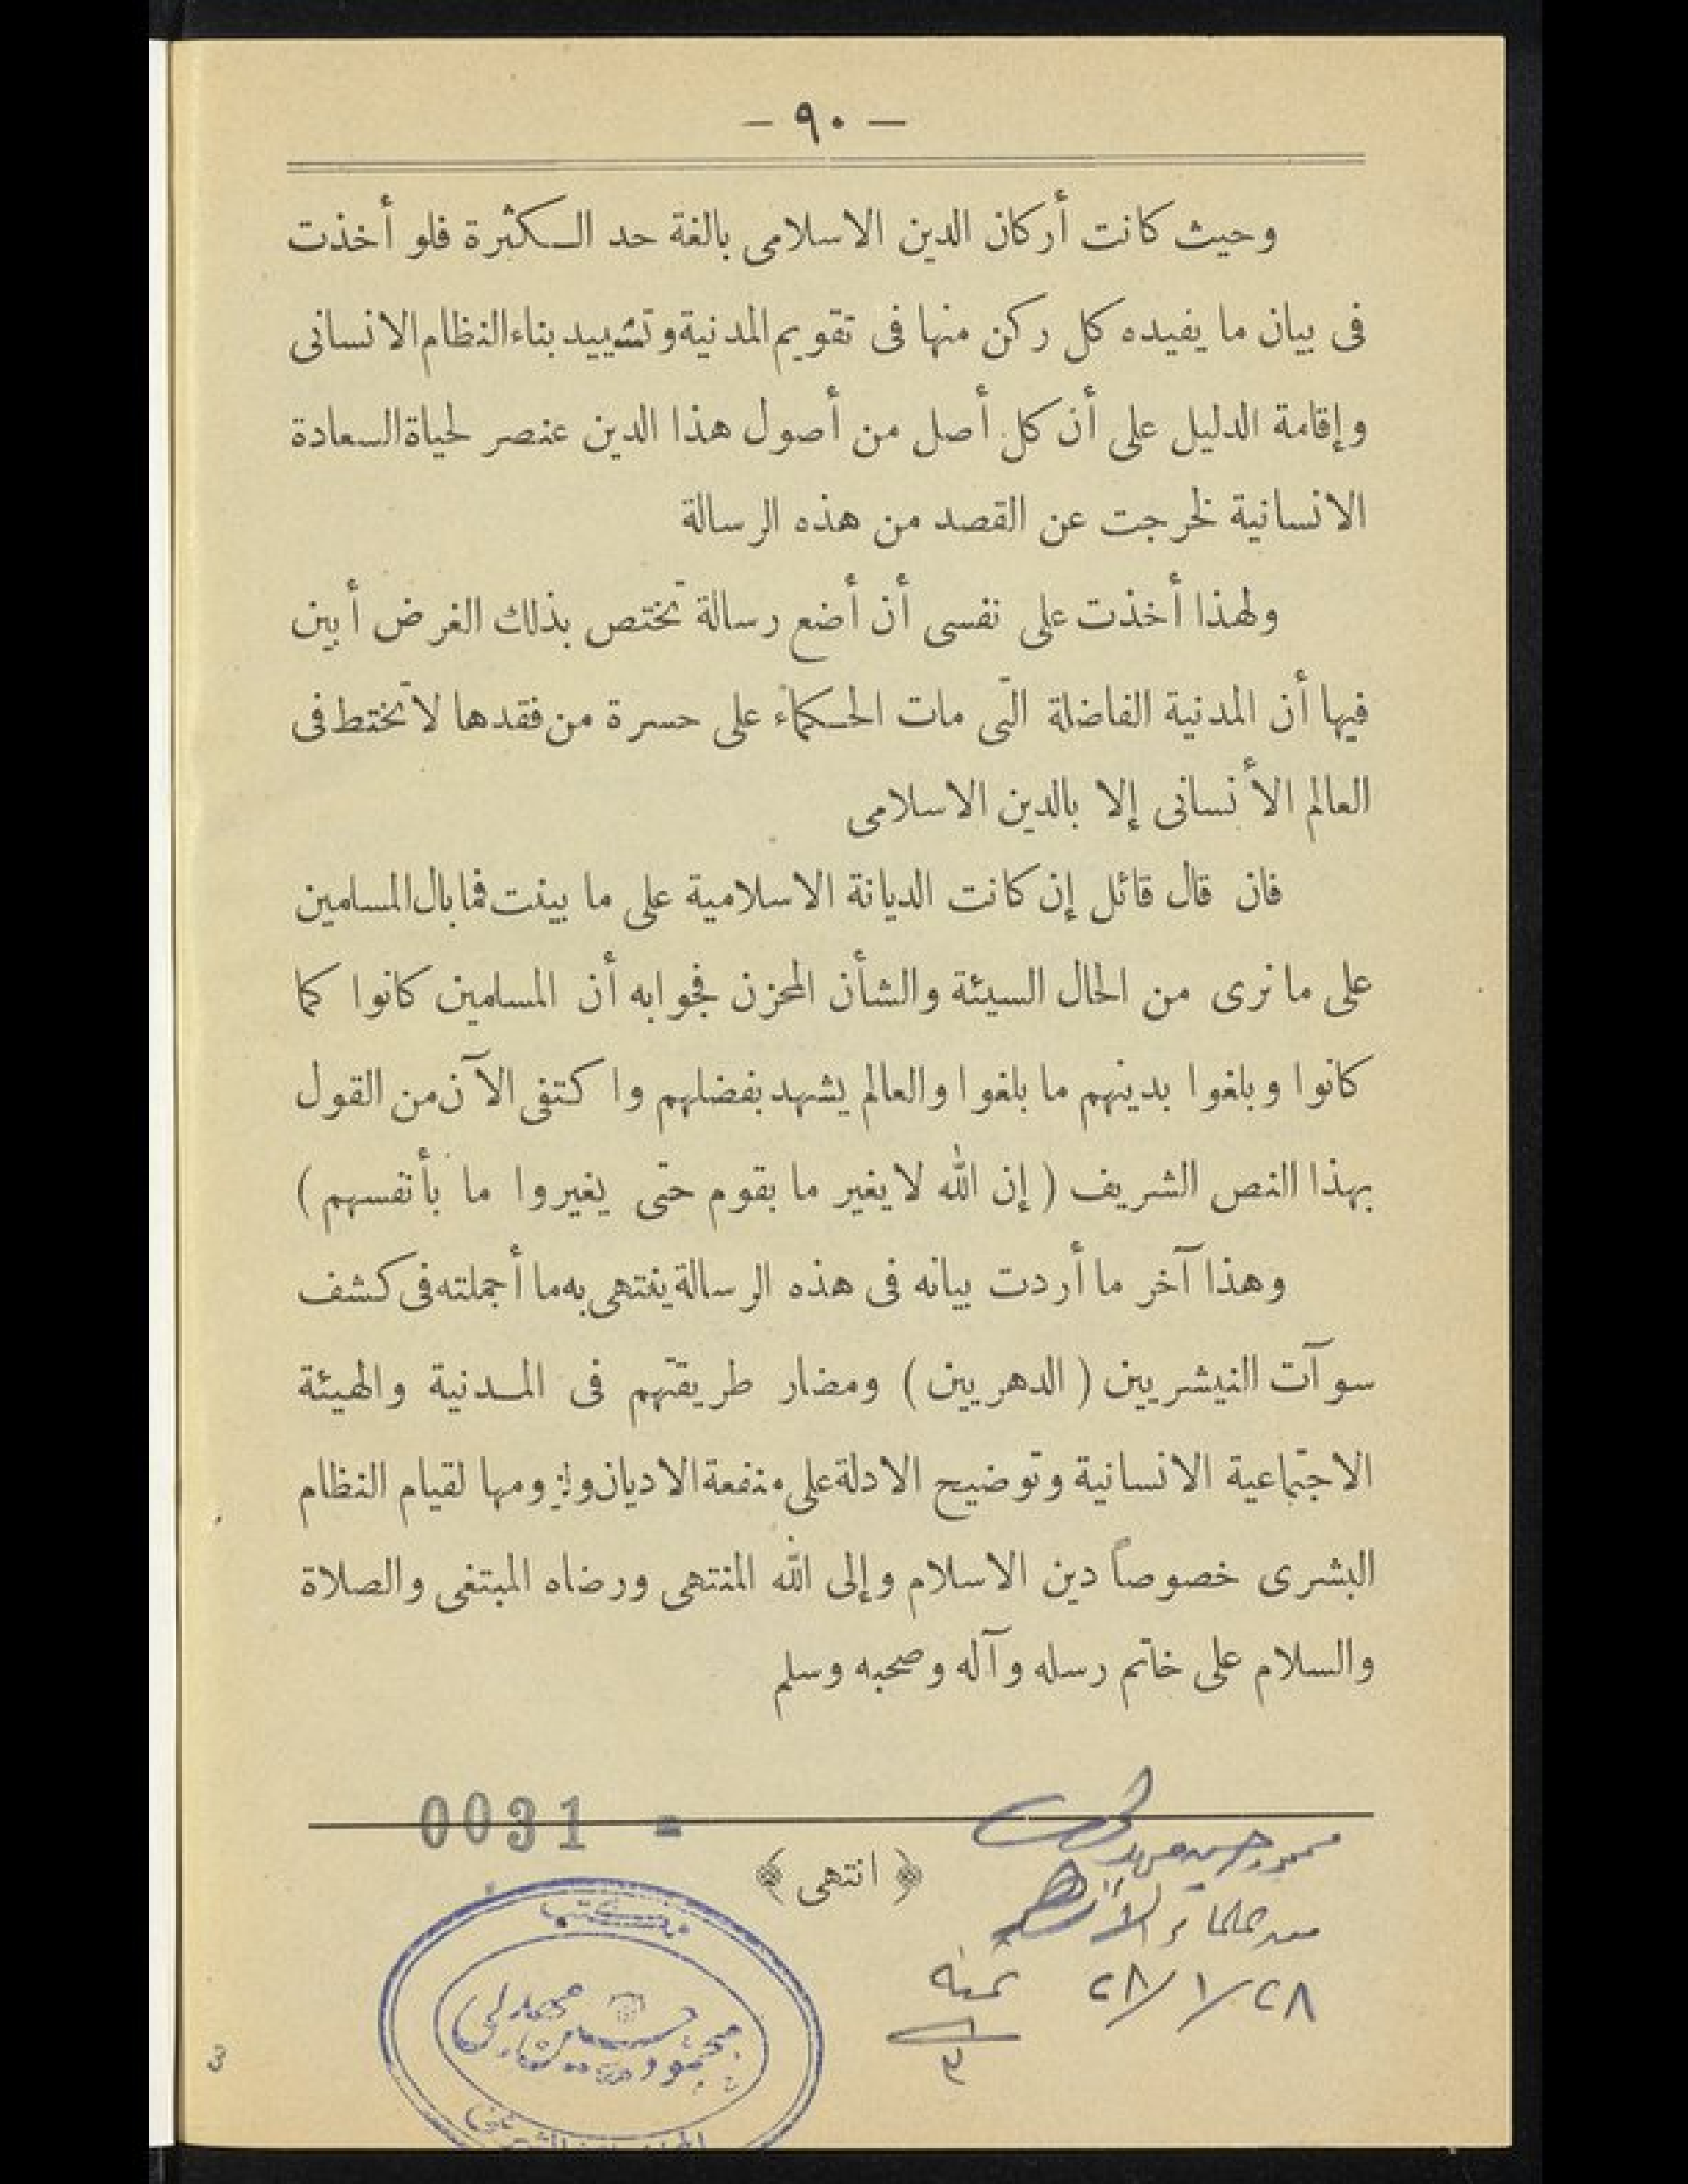 — ٩٠ —
وحيث كانت أركان الدين الاسلامى بالغة حد الـكثرة فلو أخذت
فى بيان ما يفيده كل ركن منها فى تقويم المدنية وتشييد بناء النظام الانسانى
وإقامة الدليل على أن كل أصل من أصول هذا الدين عنصر لحياة السعادة
الانسانية لخرجت عن القصد من هذه الرسالة
ولهذا أخذت على نفسى أن أضع رسالة تختص بذلك الغرض أبين
فيها أن المدنية الفاضلة التى مات الحـكماء على حسرة من فقدها لا تختط فى
العالم الأنسانى إلا بالدين الاسلامى
فان قال قائل إن كانت الديانة الاسلامية على ما بينت فما بال المسلمين
على ما نرى من الحال السيئة والشأن المحزن فجوابه أن المسلمين كانوا كما
كانوا وبلغوا بدينهم ما بلغوا والعالم يشهد بفضلهم واكتفى الآن من القول
بهذا النص الشريف ( إن الله لا يغير ما بقوم حتى يغيروا ما بأنفسهم )
وهذا آخر ما أردت بيانه فى هذه الرسالة ينتهى به ما أجملته فى كشف
سوآت النيشريين ( الدهريين ) ومضار طريقتهم فى المـدنية والهيئة
الاجتماعية الانسانية وتوضيح الادلة على منفعة الاديان ولزومها لقيام النظام
البشرى خصوصاً دين الاسلام وإلى الله المنتهى ورضاه المبتغى والصلاة
والسلام على خاتم رسله وآله وصحبه وسلم
0031 =
﴿ انتهى ﴾
من علماء الأزهر
٢٨/١/٢٨
ثمنه
٣
محمود حسين
3